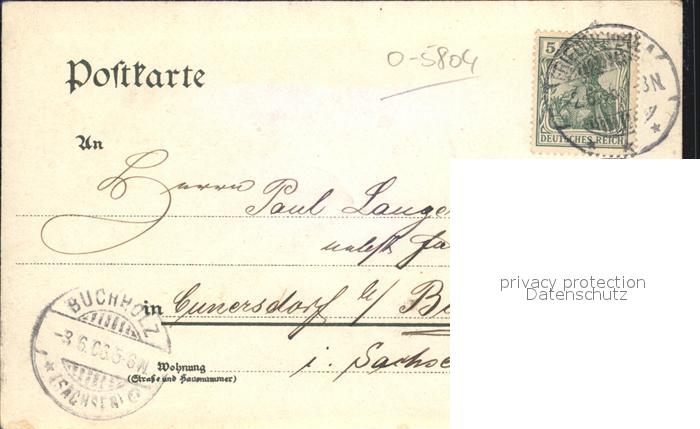 O-5804
Postkarte
5
DEUTSCHES REICH
An
Herrn Paul Lange
nebst Fa
in Cunersdorf b/ B
i. Sachse
Wohnung
(Straße und Hausnummer)
BUCHHOLZ
-3.6.06.5-6N
(SACHSEN)
privacy protection
Datenschutz